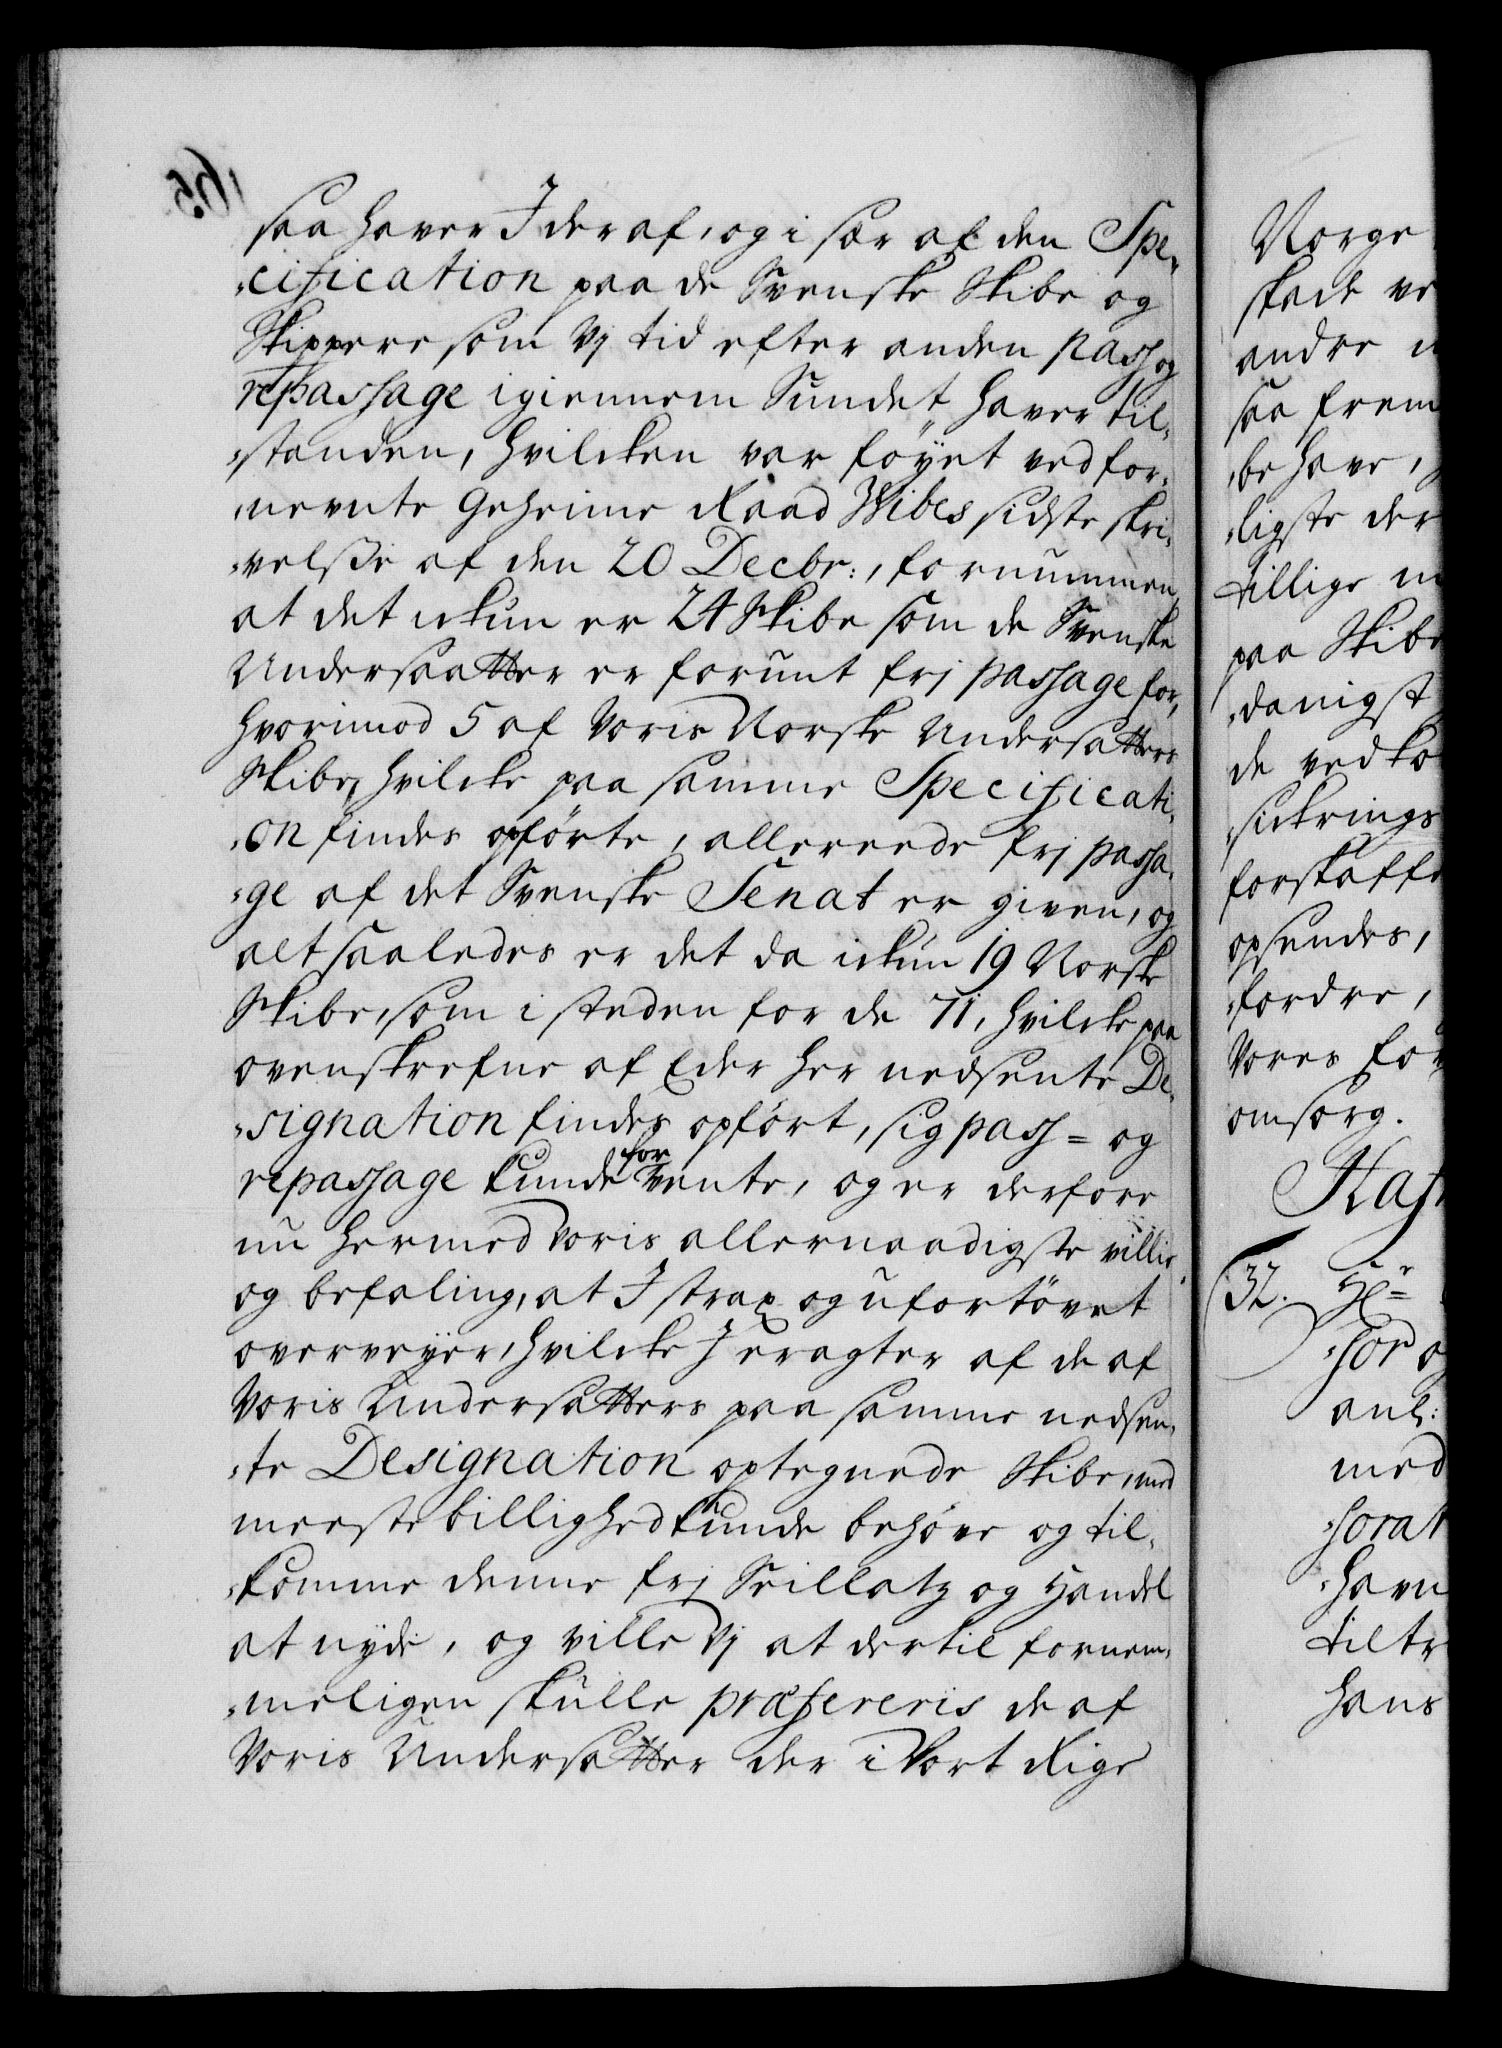 saa haver I deraf, og i sær af den Spe-
-cification paa de Svenske Skibe og
Skippere som Vj tid efter anden pass og
repassage igiennem Sundet haver til-
-standen, hvilcken var föyet ved for-
-nevnte Geheime Raad Wibes sidste skri-
-velsße af den 20 Decbr:, fornummen,
at det ickun er 24 Skibe som de Svenske
Undersaatter er forunt frj passage for,
hvorimod 5 af Voris Norske Undersatters
Skibe, hvilcke paa samme Specificati-
-on findes opförte, allereede frj passa-
-ge af det Svenske Senat er given, og
alt saaledes er det da ickun 19 Norske
Skibe, som i steden for de 71, hvilcke paa
ovenskrefne af Eder her nedsente De-
-signation findes opfört, sig pass- og
repassage kunde forvente, og er derfore
nu hermed Voris allernaadigste villie
og befaling, at I strax og ufortövet
overveyer, hvilcke I eragter af de af
Voris Undersatters paa samme nedsen-
-te Designation optegnede Skibe, med
meeste billighed kunde behöve og til-
-komme denne frj Seillatz og Handel
at nyde, og ville Vj at dertil fornem-
-meligen skulle præfereris de af
Voris Undersatter der i Vort Rige
165
Norge
skade ve
andre
saa frem
-behave,
-ligste der
tillige m
paa Skibe
-danigst
de vedko
-sickrings
forskaffe
opsendes,
-fordre,
Vores for
omsorg.
32. Hr
-for og
anl:
med
-sorat
-havn
tiltr
hans